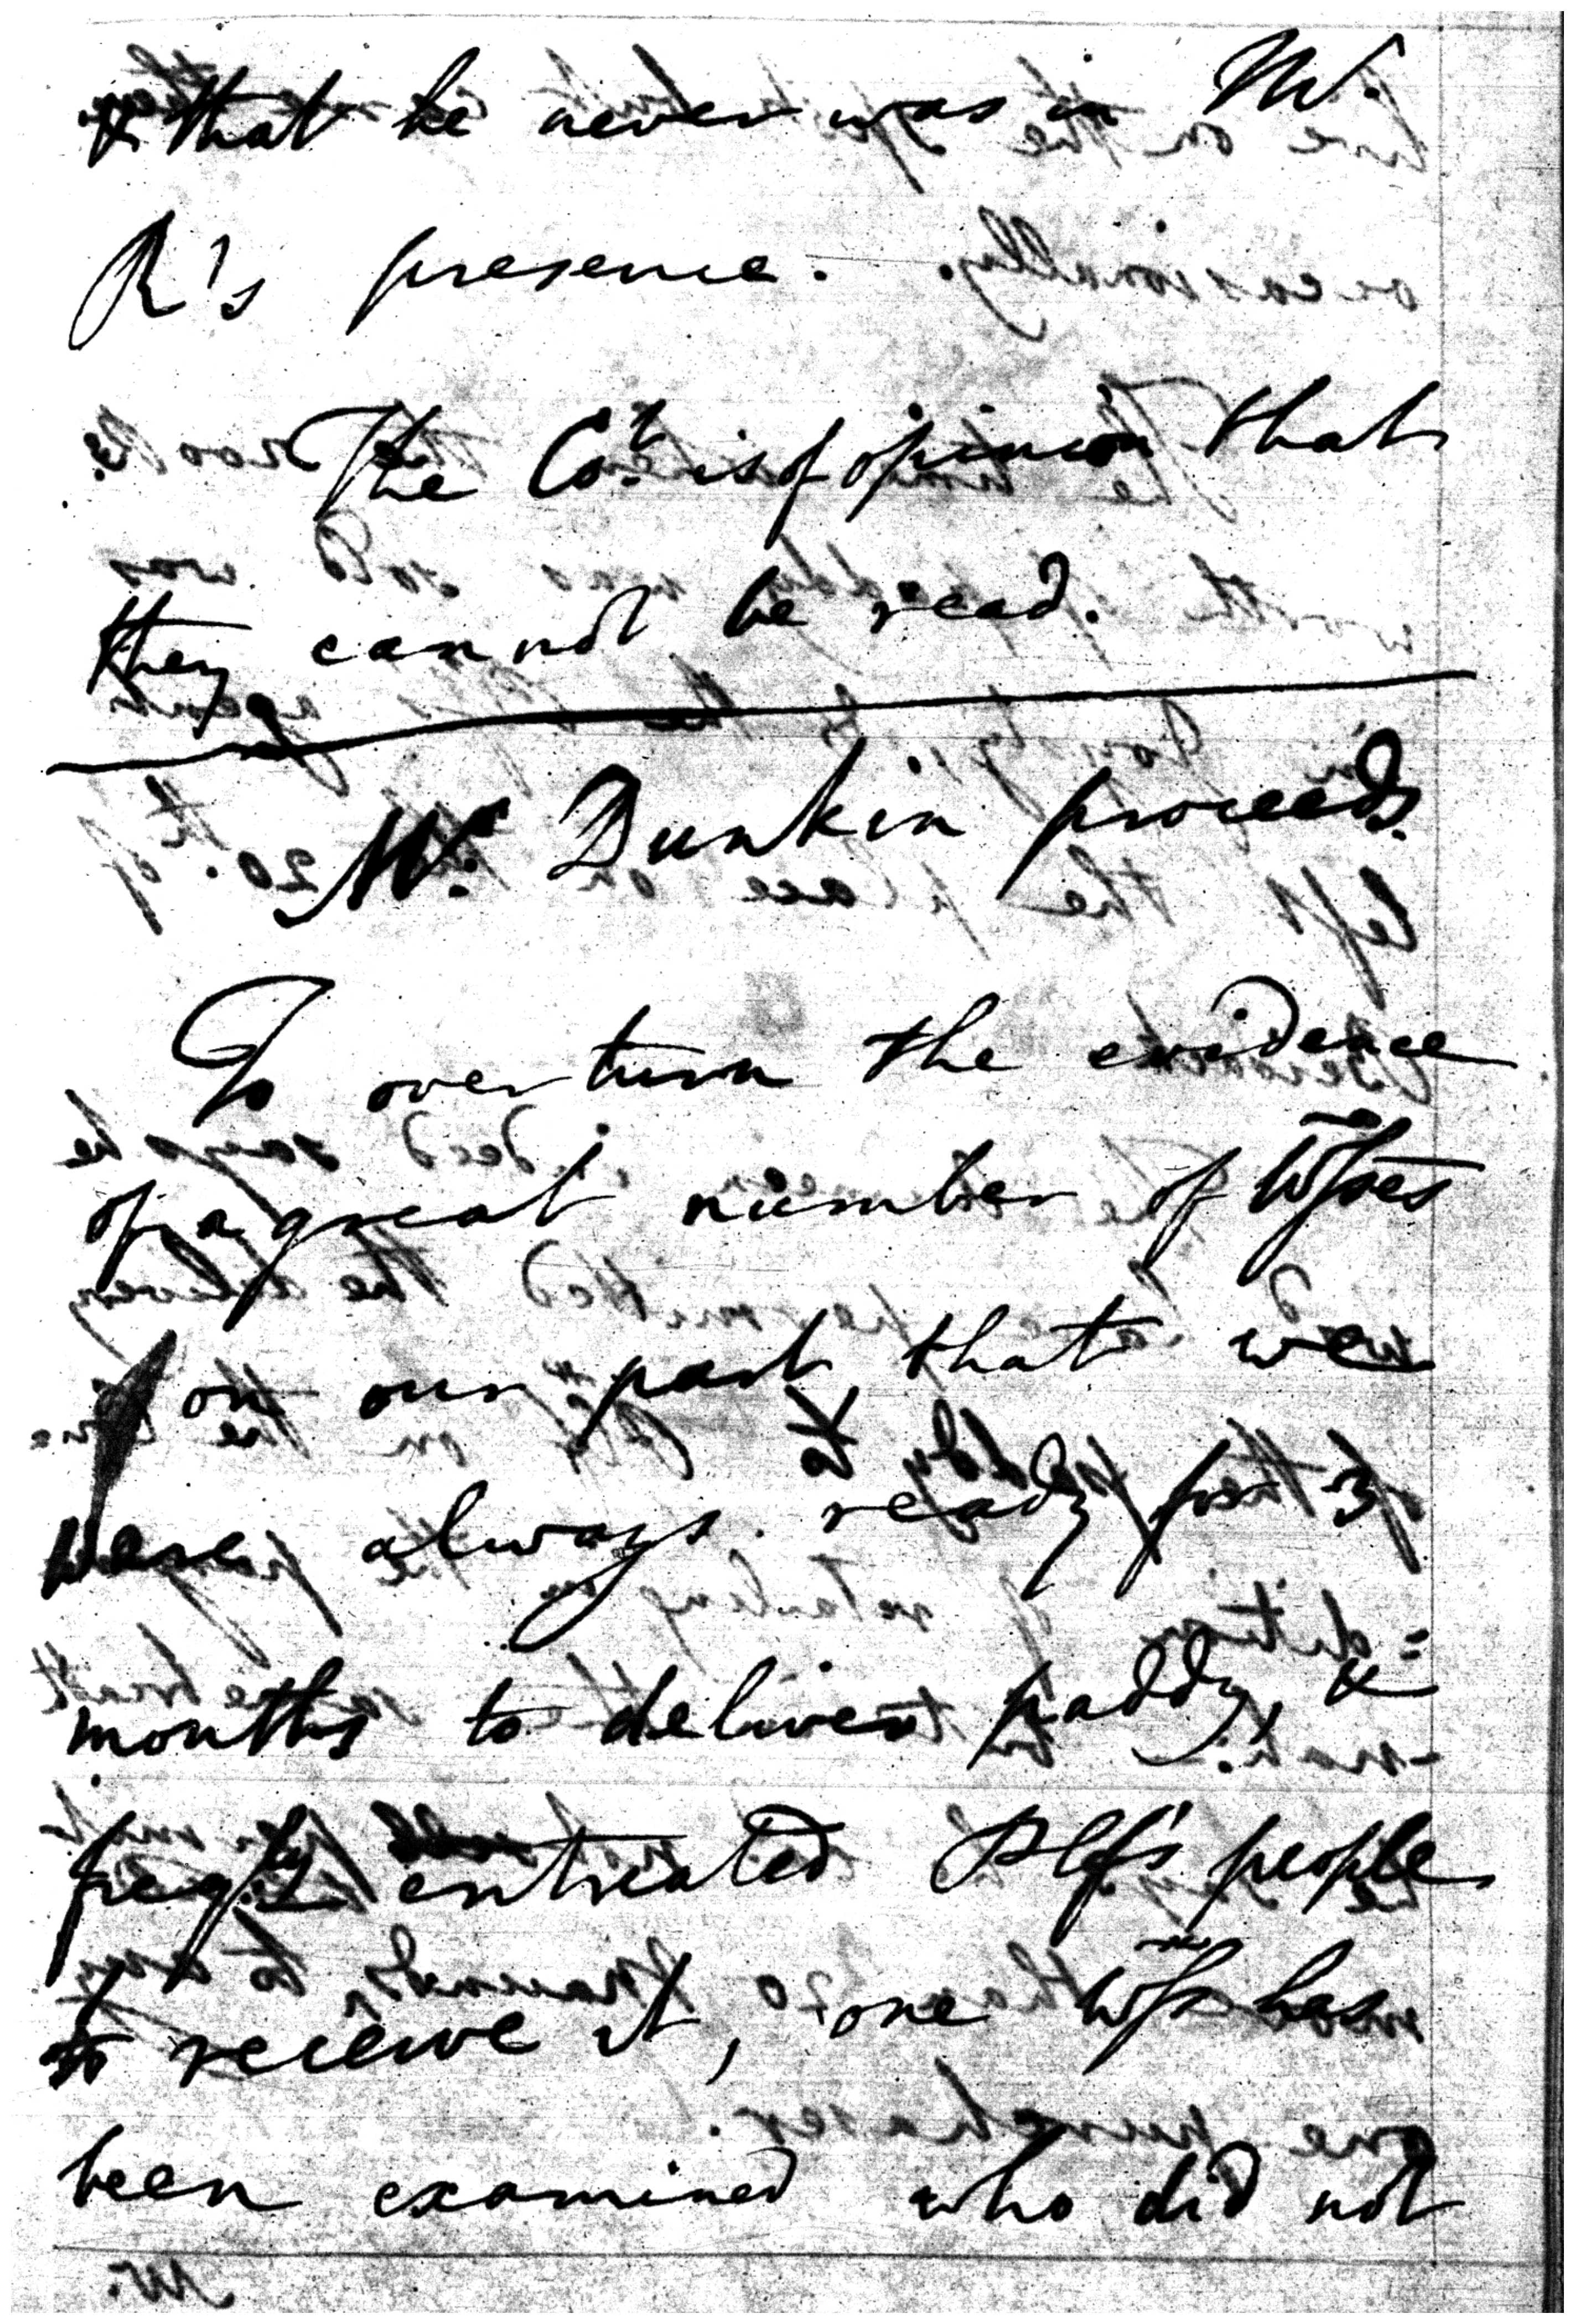 & that he never was in Mr.
R's presence.
The Cot. is of opinion that
they cannot be read.
Mr. Dunkin proceeds.
To overturn the evidence
of a great number of Wsses
on our part, that we
were always ready for 3
months to deliver paddy, &
freqly. entreated Plf's people
to recieve it, one Wss has
been examined who did not